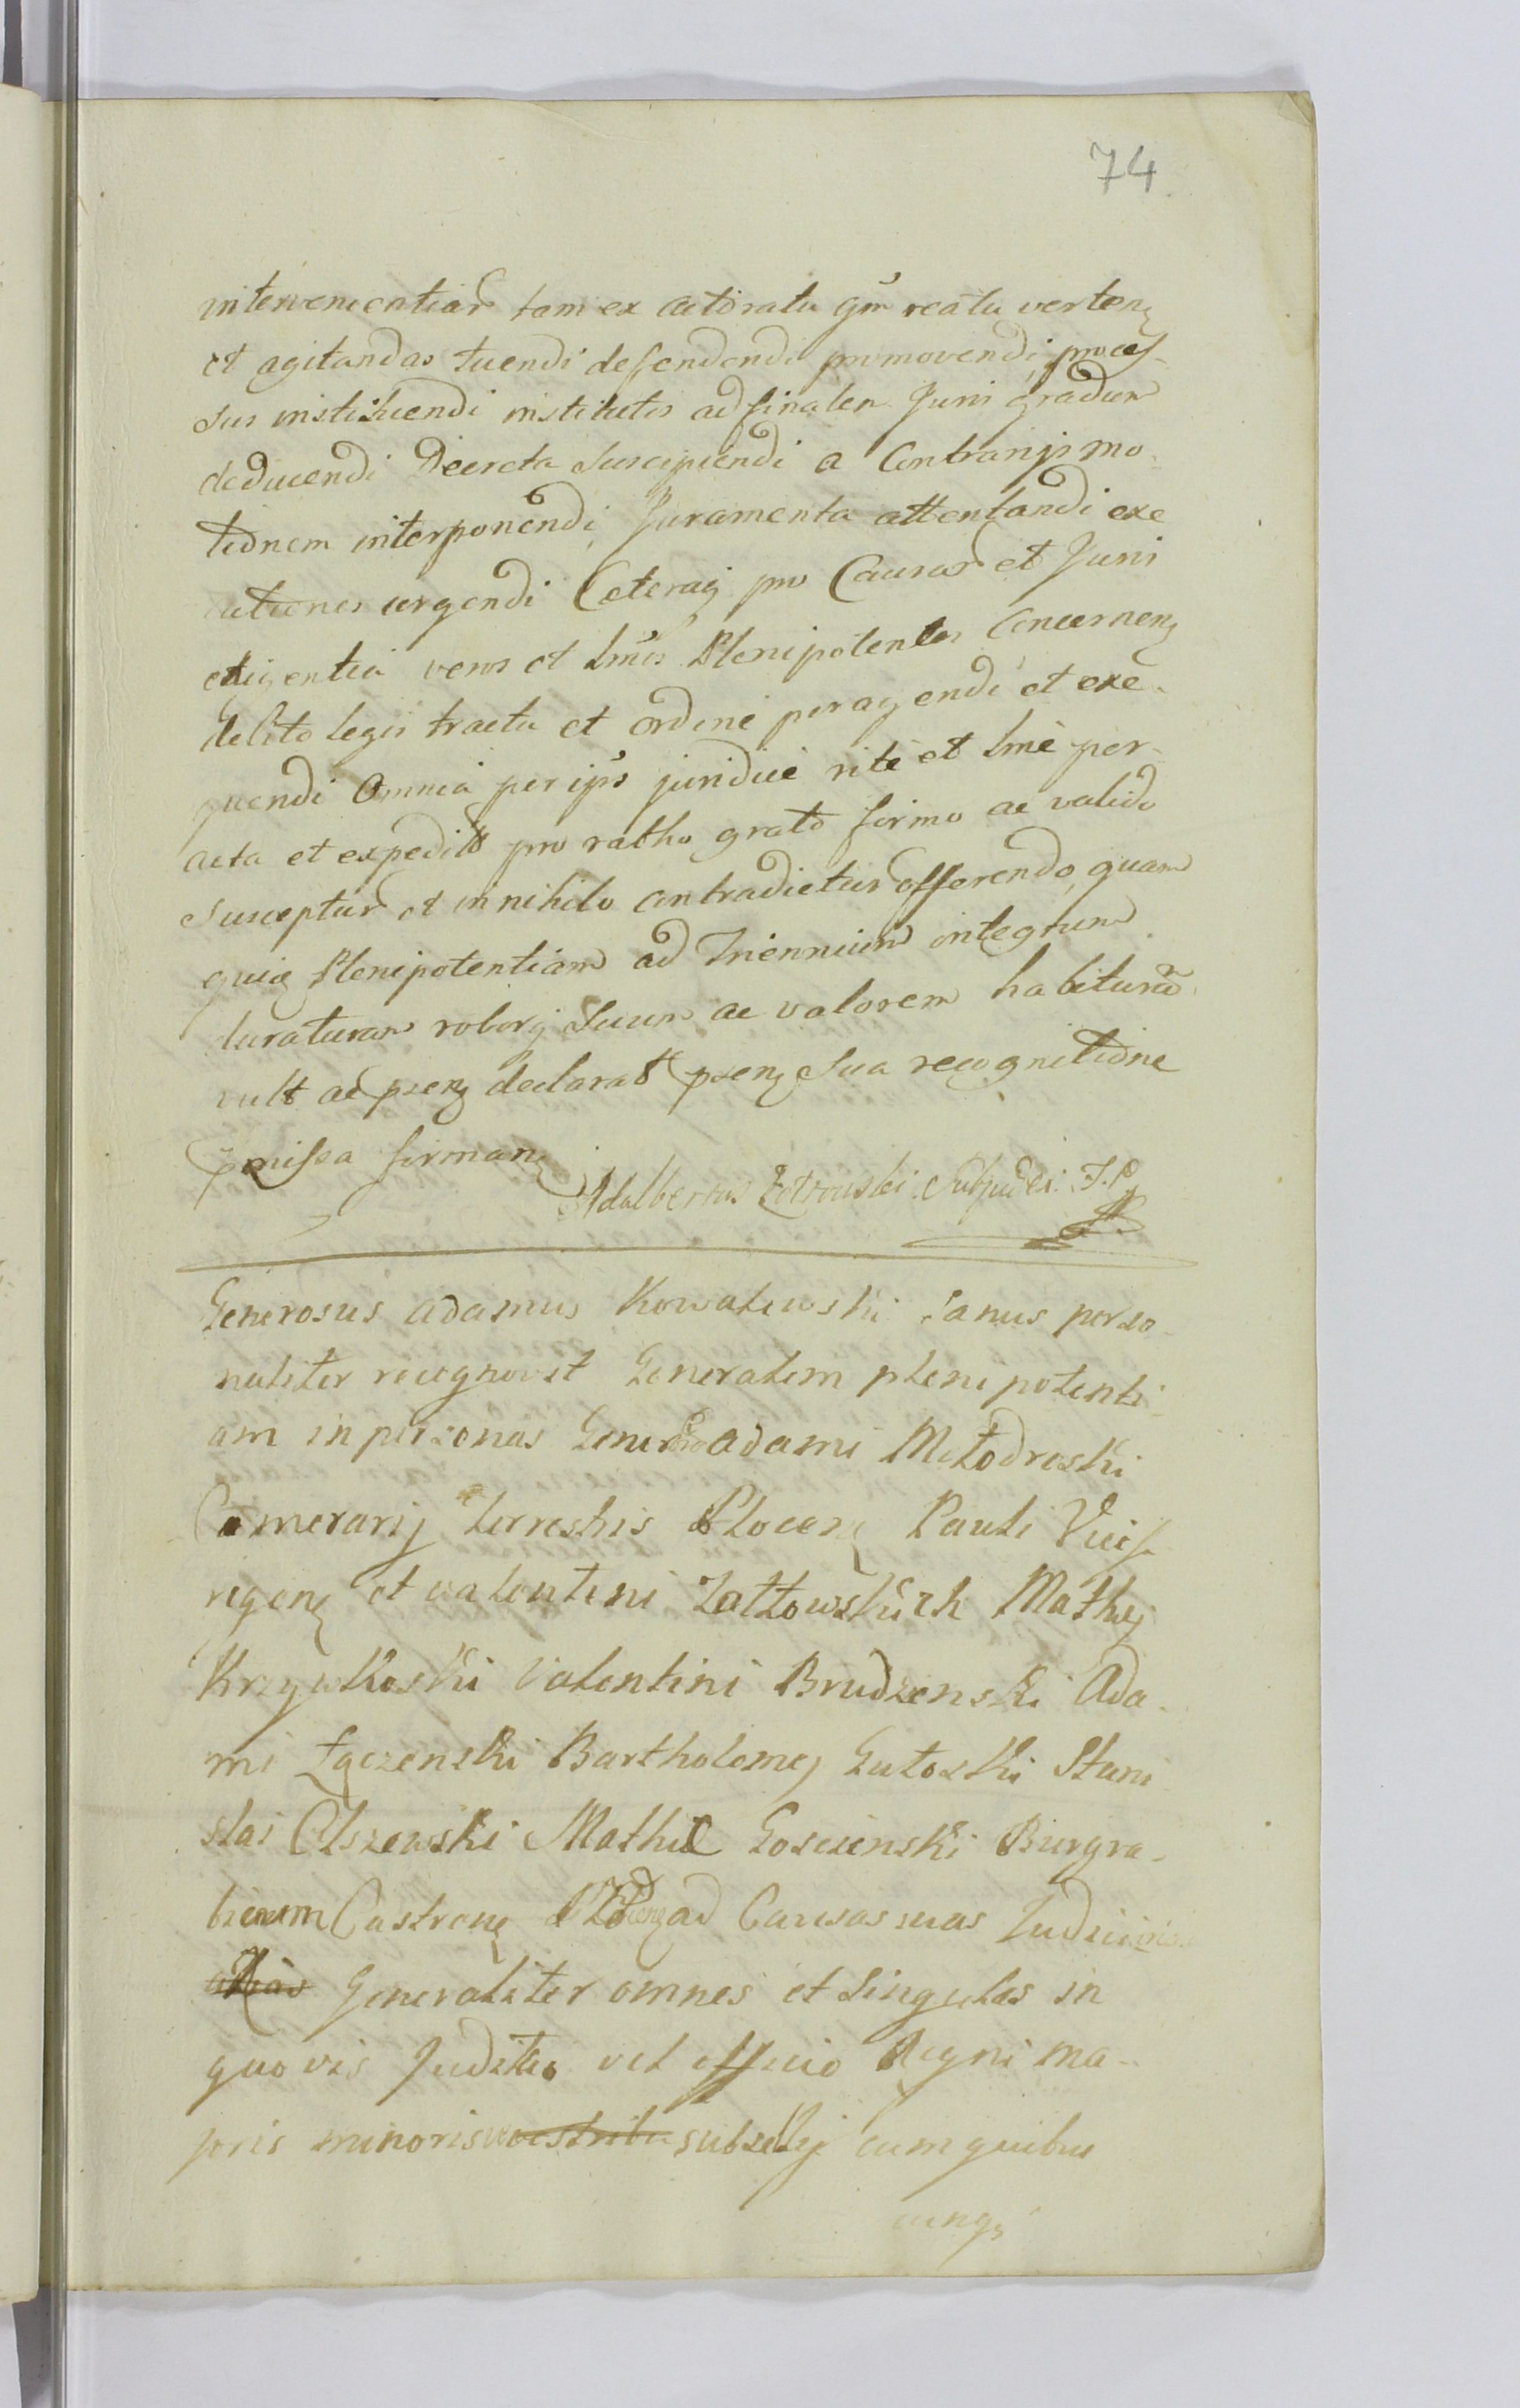 74
intervenientiar tam ex actoratu qm reatu verten
et agitandas tuendi defendendi promovendi proces
sus instituendi institutos ad finalem Juris gradum
deducendi Decreta suscipiendi a Contrarijs mo
tionem interponendi Juramenta attentandi exe
cutiones urgendi Caeteraq pro Causar et Juris
exigentia veros et lmos Plenipotentes concernen
debito legis tractu et ordine peragendi et exe
quendi Omnia per ipsos juridice rite et lme per
acta et expedita pro ratho grato firmo ac valido
suscepturo et in nihilo contradicturo offerendo quam
quiq Plenipotentiam ad Triennium integrum
duraturam roborq suum ac valorem habituram
vult ac psen declarat psen sua recognitione
pmissa firman
Adalbertus Zotowski Subjudex T. P.
Generosus Adamus Kowalewski sanus perso
naliter recognovit Generalem plenipotenti
am in personas Generoso Adami Młodroski
Camerarij terrestris Plocen Pauli Vices
regen et Valentini Zółtowskich Mathej
Krzywkoski Valentini Brudzenski Ada
mi Łączenski Bartholomej Gutoski Stani
slai Olszewski Mathie Goscienski Burgra
biorum Castren Plocen ad Causas suas Judicia
Generaliter omnes et singulas in
quovis Juditio vel officio Regni ma
joris minorisve subselij cum quibus
cunq